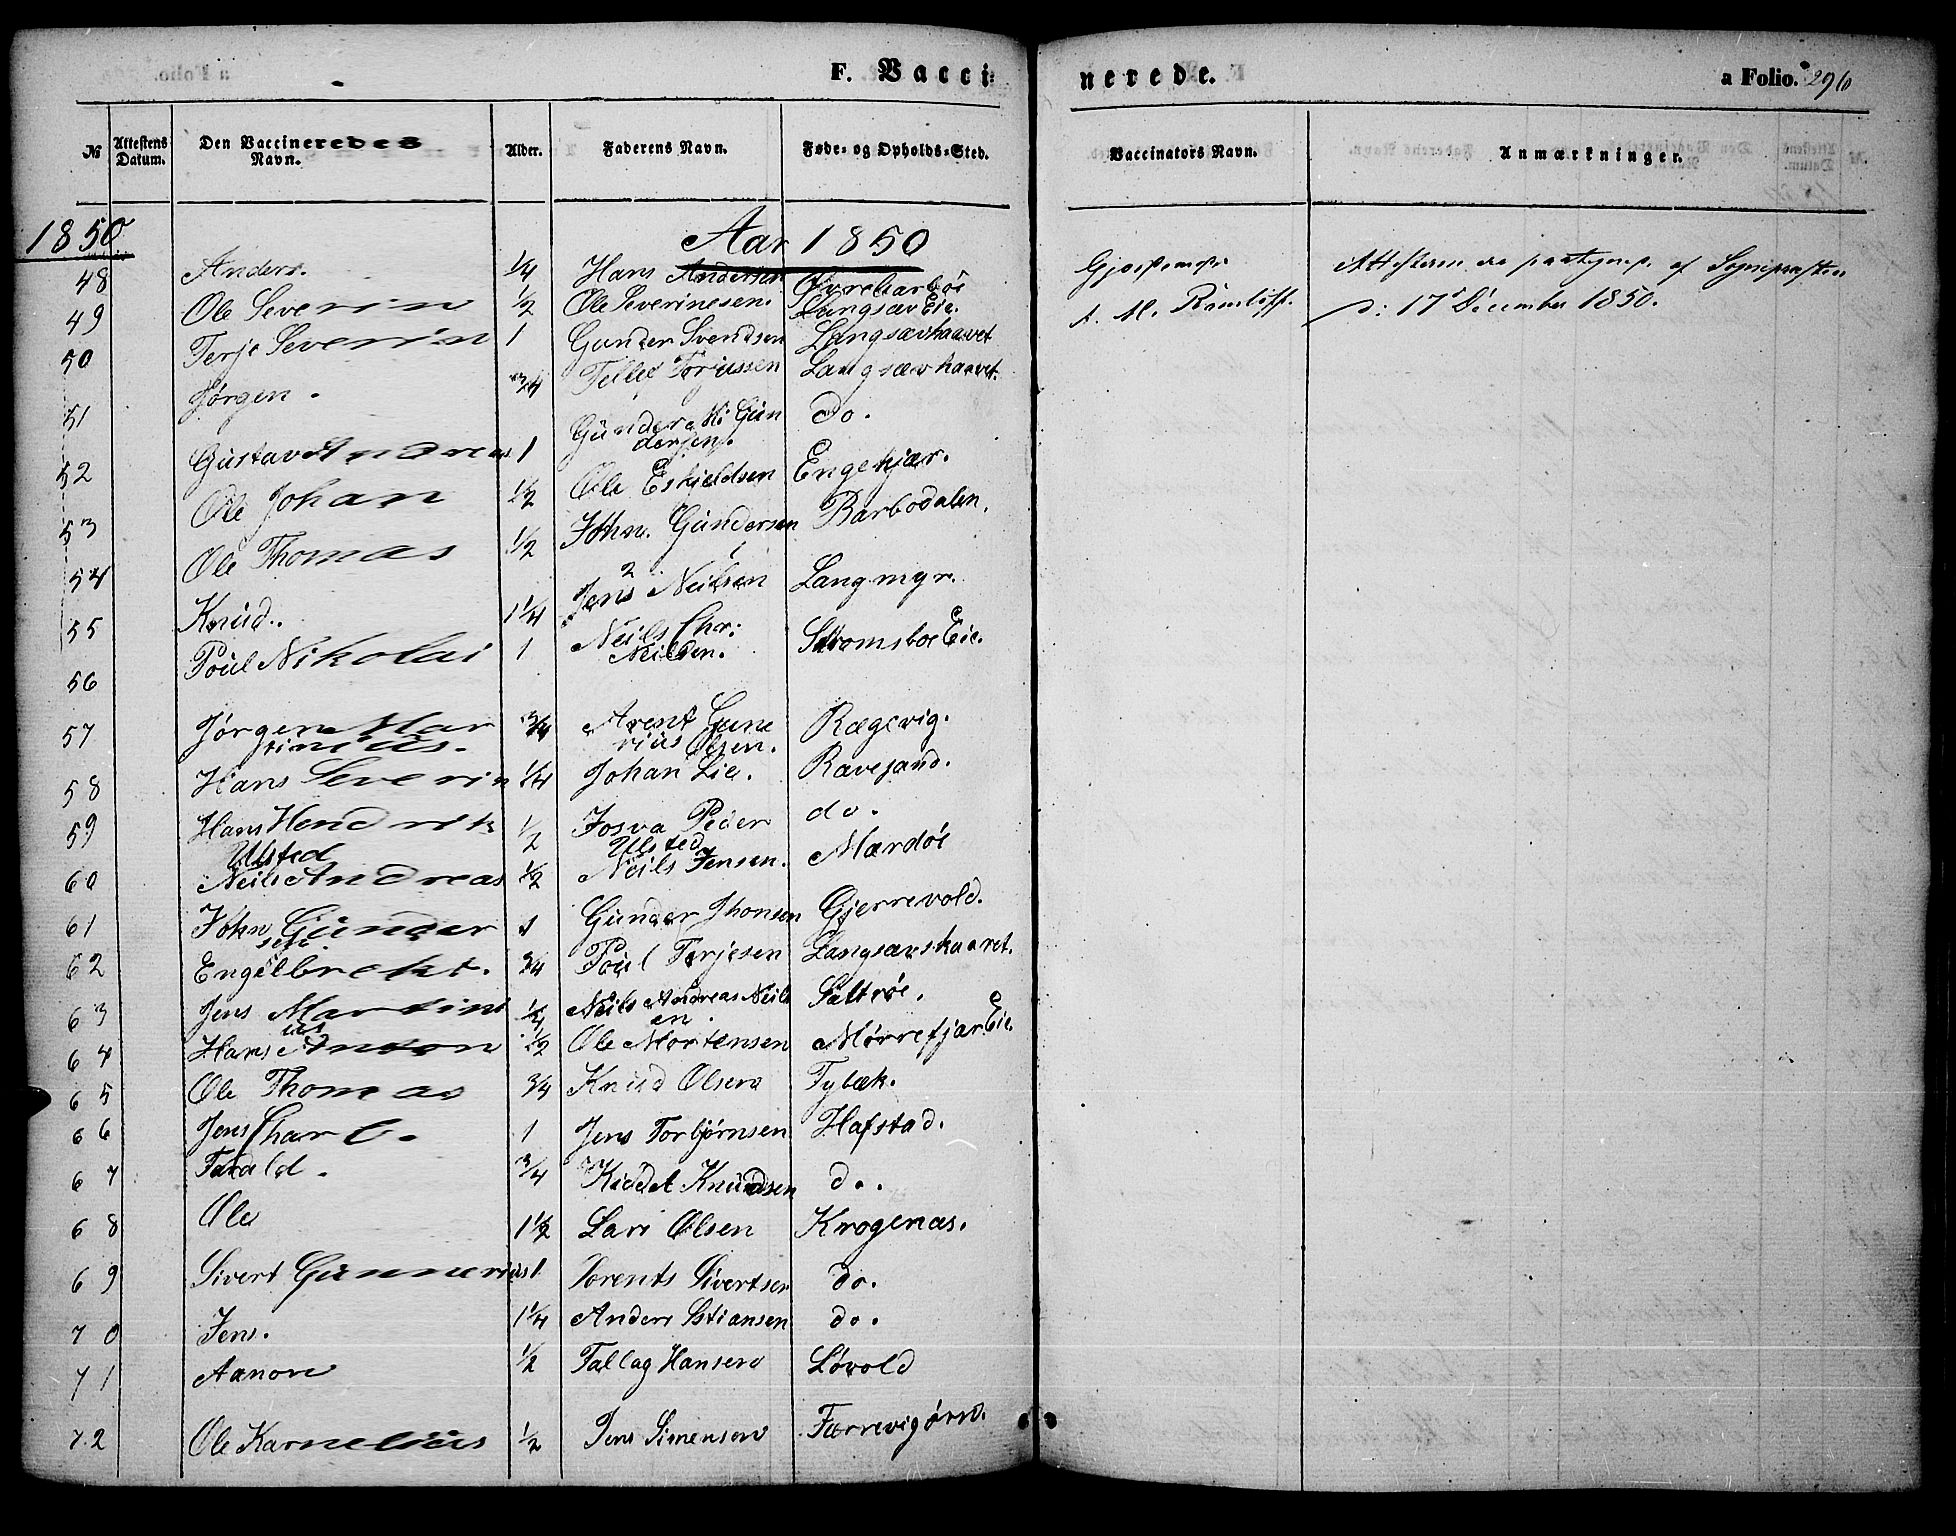 F. Vacci-
nerede.
a Folio. 296
№ Attestens Datum. Den Vaccineredes Navn. Alder. Faderens Navn. Føde- og Opholds-Sted. Vaccinators Navn. Anmærkninger.
1850 Aar 1850
48 Anders. 1/4 Hans Andersen Øvrebarbøe Attesterne ere paategnet af
49 Ole Severin 1/2 Ole Severinesen. Langsæv Eie. d: 17d December 1850.
50 Terje Severin 1 Gunder Svendsen Langsævhaavet
Jørgen. 3/4 Tellef Torjussen Langsævhaavet.
51 Gustav Andreas 1 Gunder M: Gun
dersen. do.
52 Ole Johan 1/2 Ole Eskjeldsen Engekjær.
53 Ole Thomas 1/2 John. Gundersen Barbodalen.
54 Knud. 1 1/4 Jens Neilsen Langmyr.
55 Poul Nikolai 1 Neils Chr:
Neilsen. Stromsboe Eie.
56
57 Jørgen Mar
tinius. 3/4 Arent Gune
rius Olsen. Rægevig.
58 Hans Severin 1/4 Johan Lie. Ravesand.
59 Hans Hendrik
Ulsted 1/2 Josva Peder
Ulsted do.
60 Neils Andreas 1/2 Neils Jensen. Mærdøe
61 John Gunder
sen. 1 Gunder Jhonsen Gjerrevold.
62 Engelbrekt. 3/4 Poul Terjesen Langsævskaaret.
63 Jens Martini
us 1/4 Neils Andreas Neils
en. Saltrøe.
64 Hans Anton 1/2 Ole Mortensen Mørrefjær Eie.
65 Ole Thomas 3/4 Knud Olsen Tylæk.
66 Jens Charl. 1 Jens Torbjørnsen Hafstad.
67 Tarald. 3/4 Kiddel Knudsen do.
68 Ole 1 1/2 Lars Olsen Krogenas.
69 Sivert Gunnerius 1 Lorents Sivertsen do.
70 Jens. 1 1/4 Anders Stiansen do.
71 Aanon 1/2 Tallag Hansen Løvold
72 Ole Karnelius 1/2 Jens Simensen Færrevigørn.